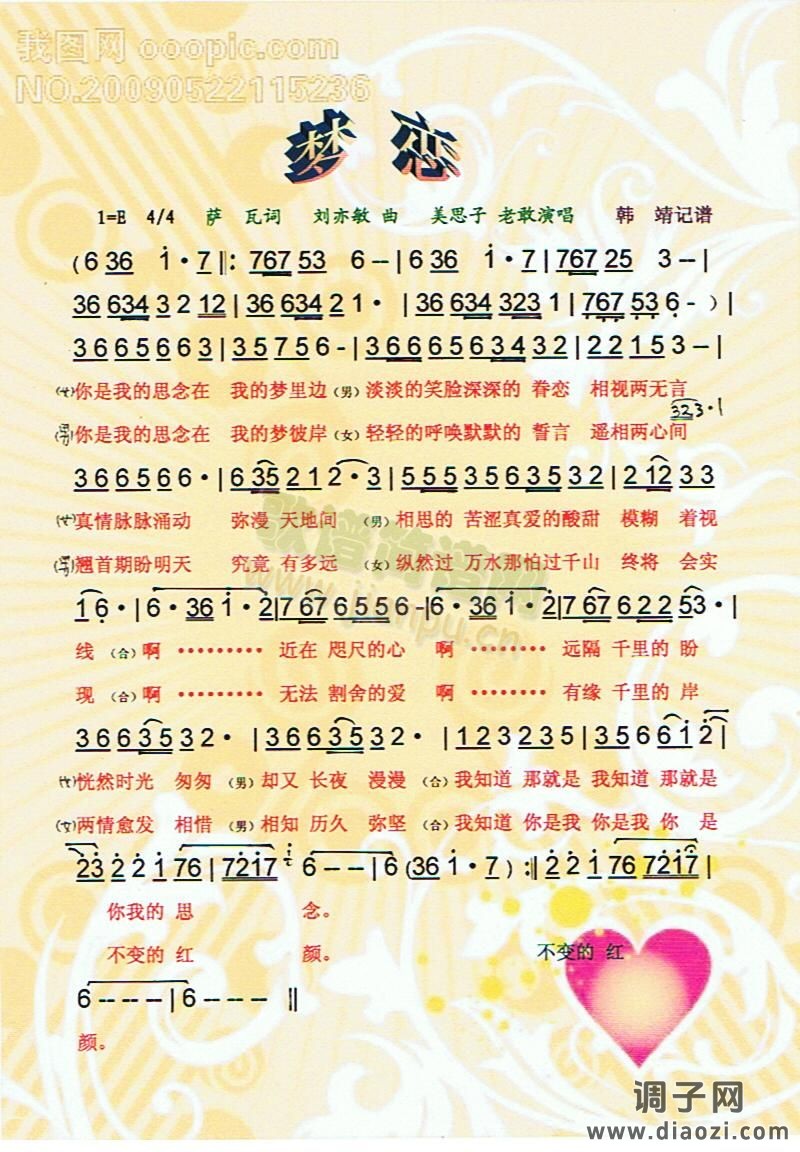 我图网 ooopic.com
NO.20090522115236
梦 恋
1=E 4/4 萨 瓦词 刘亦敏 曲 美思子 老敢演唱 韩 靖记谱
(6 36 1·7 ‖: 767 53 6 -- | 6 36 1·7 | 767 25 3 -- |
36 634 3 2 12 | 36 634 2 1· | 36 634 323 1 | 767 53 6 - ) |
3 6 6 5 6 6 3 | 3 5 7 5 6 - | 3 6 6 6 5 6 3 4 3 2 | 2 2 1 5 3 -- |
(女)你是我的思念在 我的梦里边 (男) 淡淡的笑脸深深的 眷恋 相视两无言
323·1
(男)你是我的思念在 我的梦彼岸 (女) 轻轻的呼唤默默的 誓言 遥相两心间
3 6 6 5 6 6· | 6 35 2 1 2·3 | 5 5 5 3 5 6 5 3 5 3 2 | 2 12 3 3
(女)真情脉脉涌动 弥漫 天地间 (男) 相思的 苦涩真爱的酸甜 模糊 着视
(男)翘首期盼明天 究竟 有多远 (女) 纵然过 万水那怕过千山 终将 会实
1 6· | 6·36 1·2 | 7 67 6 5 5 6 - | 6·36 1·2 | 7 67 6 2 2 53· |
线 (合) 啊 ········· 近在 咫尺的心 啊 ········ 远隔 千里的 盼
现 (合) 啊 ········· 无法 割舍的爱 啊 ········ 有缘 千里的 岸
3 6 6 3 5 3 2· | 3 6 6 3 5 3 2· | 1 2 3 2 3 5 | 3 5 6 6 1 2 |
(女)恍然时光 匆匆 (男) 却又 长夜 漫漫 (合) 我知道 那就是 我知道 那就是
(女)两情愈发 相惜 (男) 相知 历久 弥坚 (合) 我知道 你是我 你是我 你 是
23 2 2 1 76 | 7217 6 -- | 6 -- 6 (36 1·7 ) :‖ 2 2 1 76 7217 |
你我的 思 念。
不变的 红 颜。 不变的 红
6 -- -- | 6 -- -- ‖
颜。
歌谱简谱网
www.jianpu.cn
调子网
www.diaozi.com